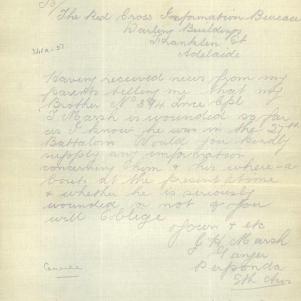 To/
The Red Cross Information Bureau
Darling Buildings
Franklin St
Adelaide
Having received news from my
parents telling me that my
Brother No Lnce Cpl
J Marsh is wounded so far
as I know he was in the 27th
Battalion Would you kindly
supply any information
concerning him & his where-a
bouts at the present time
& whether he is seriously
wounded or not & you
will oblige
Yours & etc
J H Marsh
Ganger
Perponda
Sth Aus